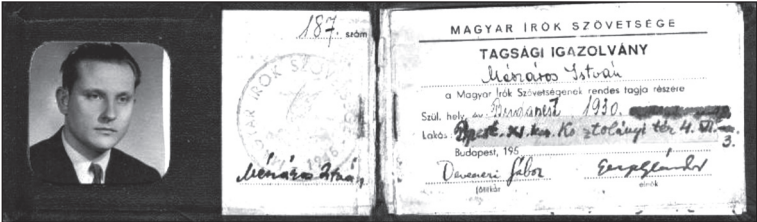 187. szám
MAGYAR IRÓK SZÖVETSÉGE
1945
Mészáros István
MAGYAR IRÓK SZÖVETSÉGE
TAGSÁGI IGAZOLVÁNY
Mészáros István
a Magyar Irók Szövetségének rendes tagja részére
Szül. hely, Budapest 1930.
Lakás: Bpest. XI. ker. Kosztolányi tér 4. 3.
Budapest, 195
Devecseri Gábor
főtitkár elnök